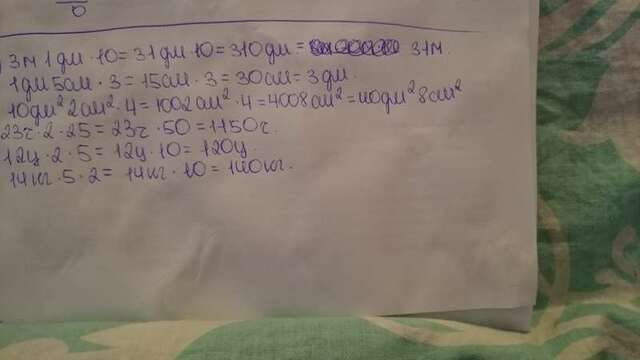 3м 1дм · 10 = 31дм · 10 = 310дм = 31м.
1дм 5см · 3 = 15см · 3 = 30см = 3дм.
10дм² 2см² · 4 = 1002см² · 4 = 4008см² = 40дм² 8см²
23ч · 2 · 25 = 23ч · 50 = 1150ч.
12ц · 2 · 5 = 12ц · 10 = 120ц.
14кг · 5 · 2 = 14кг · 10 = 140кг.